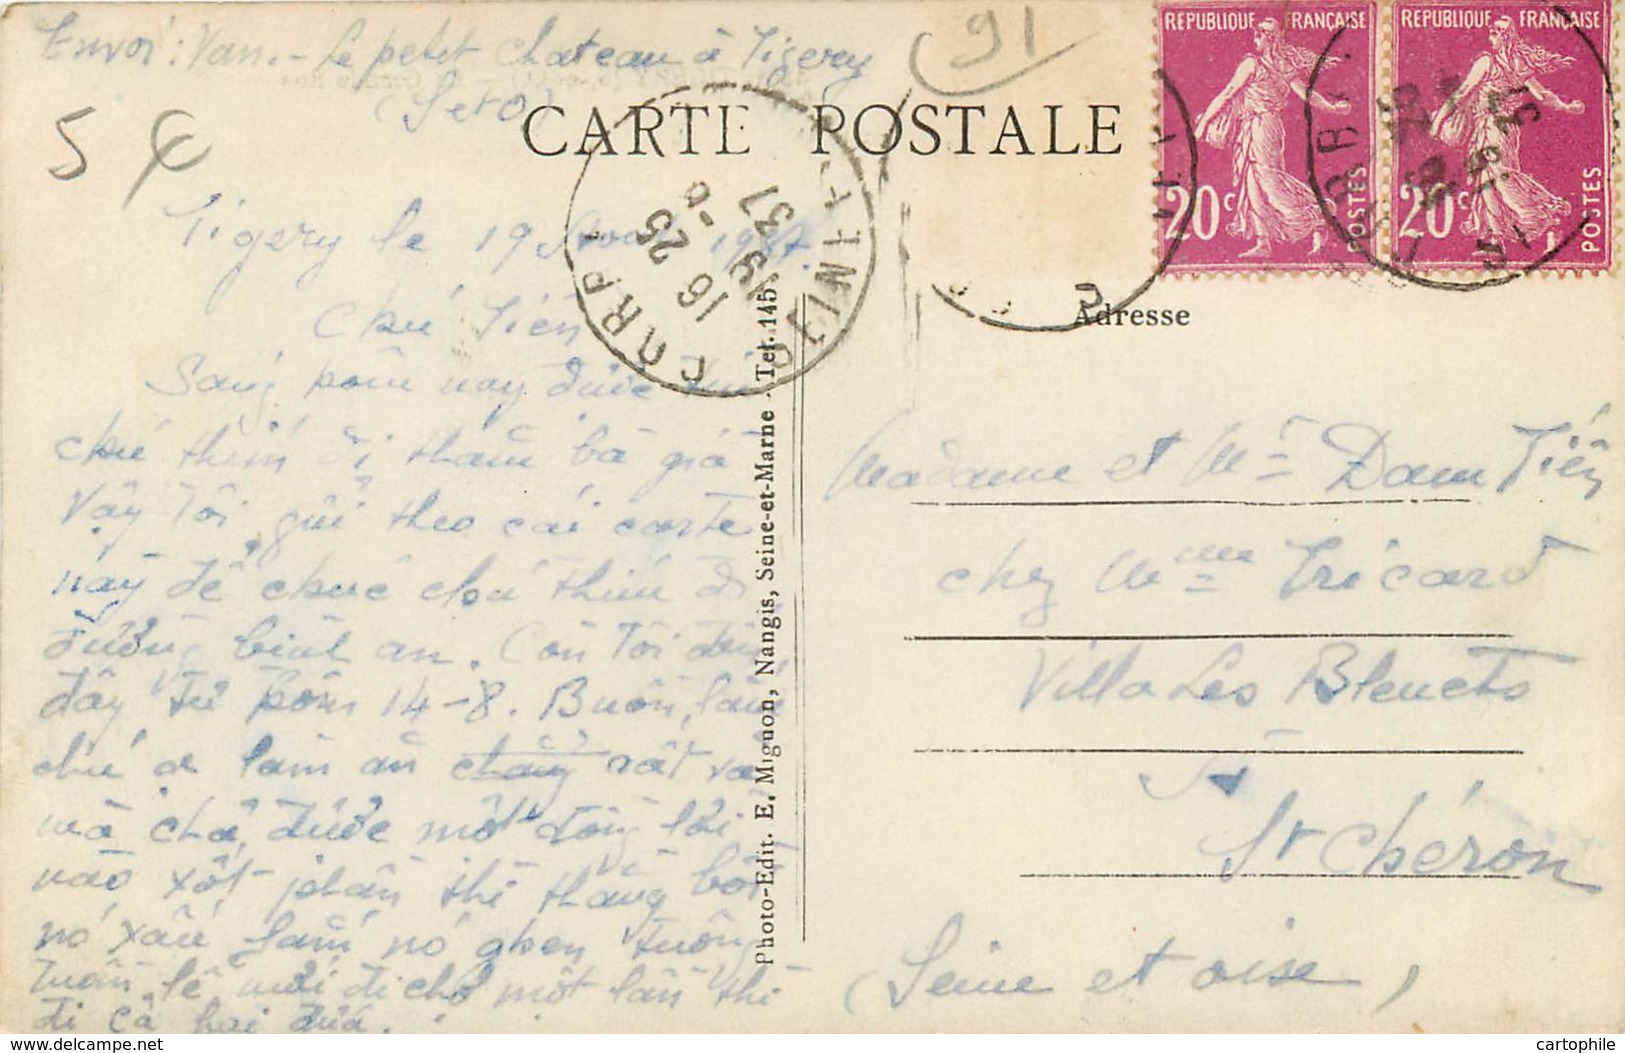 Envoi : Van. - Le petit Chateau à Tigery
(S et O)
91
5 €
CARTE POSTALE
REPUBLIQUE FRANÇAISE
20c
POSTES
REPUBLIQUE FRANÇAISE
20c
POSTES
16 25
19 8
37
Tigery le 19 Août 1937
Chú Tiến
Sáng hôm nay được tin
chú thím đi thăm bà già
Vậy Tôi gửi theo cái carte
này để chúc chú thím đi
đường bình an. Còn Tôi đến
đây từ hôm 14-8. Buồn lắm
chú ạ làm ăn rất
mà chả được một đồng lời
nào xốt phần thì thằng bồi
nó xấu lắm nó ghen
tuần lễ mới đi chợ một lần thì
đi cả hai đứa.
Photo-Edit. E. Mignon, Nangis, Seine-et-Marne - Tel. 145
Adresse
Madame et Mr Dam Tiến
chez Mme Tricard
Villa Les Bleuets
St Chéron
(Seine et oise)
delcampe.net
cartophile